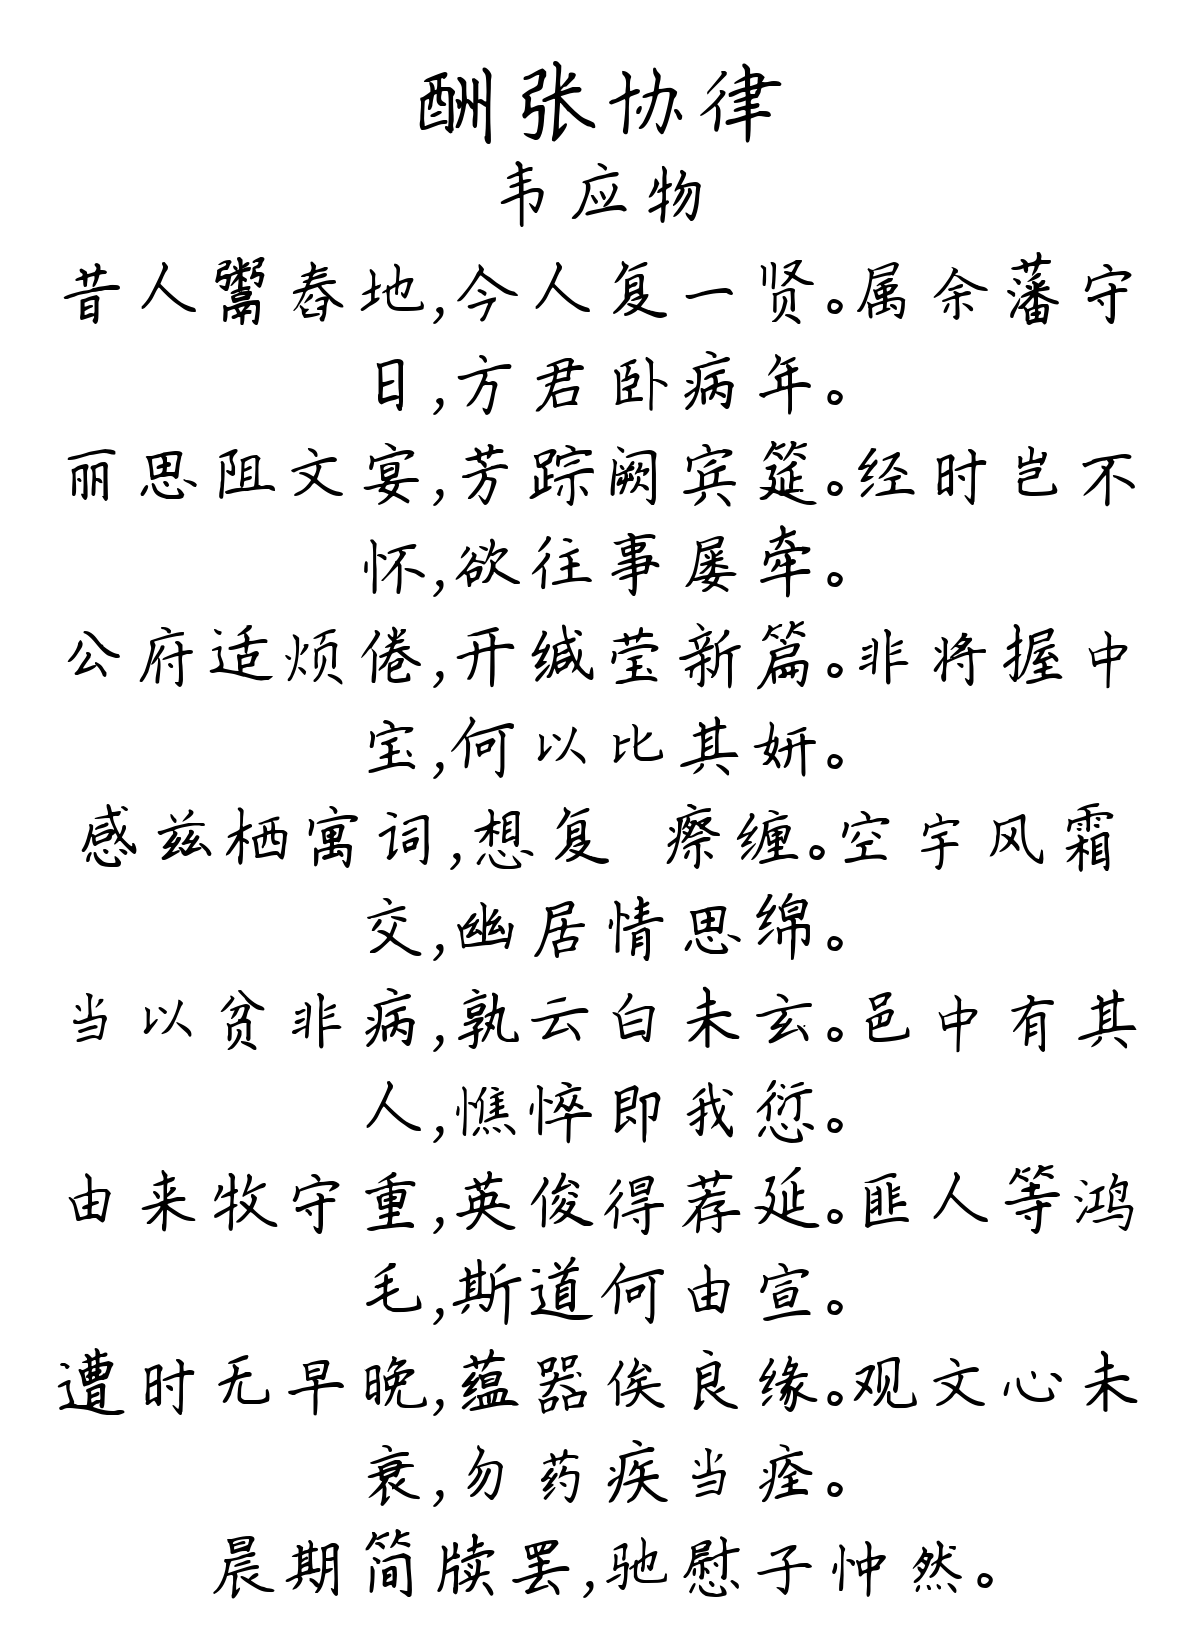 酬张协律
韦应物
昔人鬻舂地,今人复一贤。属余藩守
日,方君卧病年。
丽思阻文宴,芳踪阙宾筵。经时岂不
怀,欲往事屡牵。
公府适烦倦,开缄莹新篇。非将握中
宝,何以比其妍。
感兹栖寓词,想复 瘵缠。空宇风霜
交,幽居情思绵。
当以贫非病,孰云白未玄。邑中有其
人,憔悴即我愆。
由来牧守重,英俊得荐延。匪人等鸿
毛,斯道何由宣。
遭时无早晚,蕴器俟良缘。观文心未
衰,勿药疾当痊。
晨期简牍罢,驰慰子忡然。